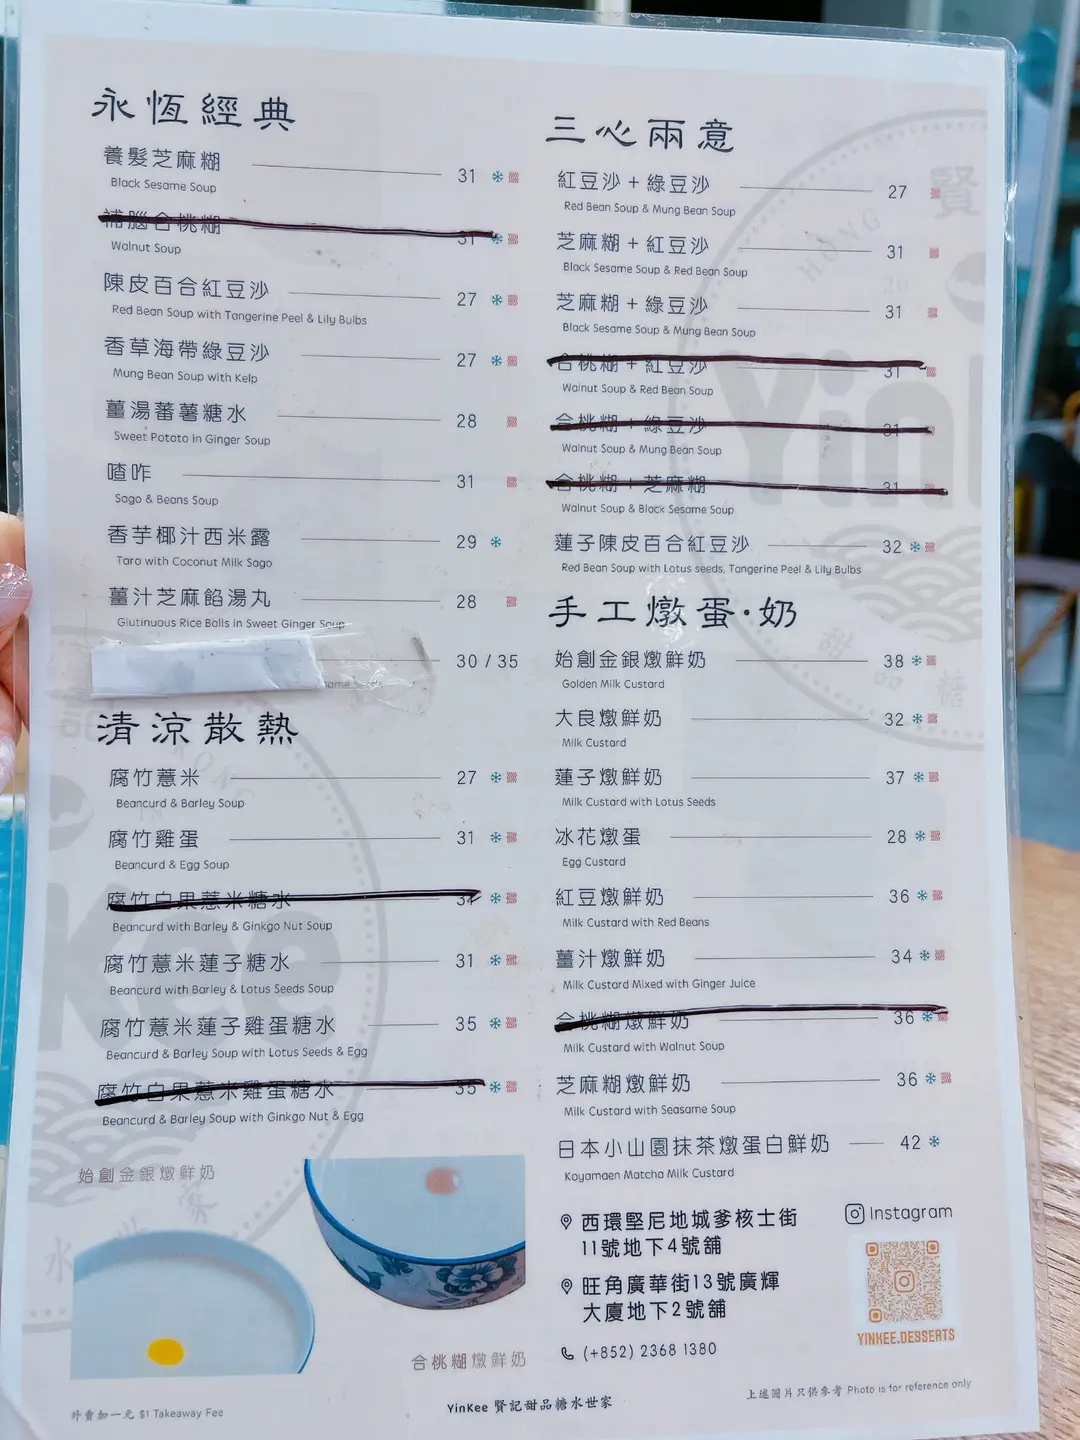 永恆經典
養髮芝麻糊 31
Black Sesame Soup
補腦合桃糊 31
Walnut Soup
陳皮百合紅豆沙 27
Red Bean Soup with Tangerine Peel & Lily Bulbs
香草海帶綠豆沙 27
Mung Bean Soup with Kelp
薑湯蕃薯糖水 28
Sweet Potato in Ginger Soup
喳咋 31
Sago & Beans Soup
香芋椰汁西米露 29
Taro with Coconut Milk Sago
薑汁芝麻餡湯丸 28
Glutinuous Rice Balls in Sweet Ginger Soup
30 / 35
清涼散熱
腐竹薏米 27
Beancurd & Barley Soup
腐竹雞蛋 31
Beancurd & Egg Soup
腐竹白果薏米糖水 31
Beancurd with Barley & Ginkgo Nut Soup
腐竹薏米蓮子糖水 31
Beancurd with Barley & Lotus Seeds Soup
腐竹薏米蓮子雞蛋糖水 35
Beancurd & Barley Soup with Lotus Seeds & Egg
腐竹白果薏米雞蛋糖水 35
Beancurd & Barley Soup with Ginkgo Nut & Egg
始創金銀燉鮮奶
合桃糊燉鮮奶
外賣加一元 $1 Takeaway Fee
三心兩意
紅豆沙 + 綠豆沙 27
Red Bean Soup & Mung Bean Soup
芝麻糊 + 紅豆沙 31
Black Sesame Soup & Red Bean Soup
芝麻糊 + 綠豆沙 31
Black Sesame Soup & Mung Bean Soup
合桃糊 + 紅豆沙 31
Walnut Soup & Red Bean Soup
合桃糊 + 綠豆沙 31
Walnut Soup & Mung Bean Soup
合桃糊 + 芝麻糊 31
Walnut Soup & Black Sesame Soup
蓮子陳皮百合紅豆沙 32
Red Bean Soup with Lotus seeds, Tangerine Peel & Lily Bulbs
手工燉蛋·奶
始創金銀燉鮮奶 38
Golden Milk Custard
大良燉鮮奶 32
Milk Custard
蓮子燉鮮奶 37
Milk Custard with Lotus Seeds
冰花燉蛋 28
Egg Custard
紅豆燉鮮奶 36
Milk Custard with Red Beans
薑汁燉鮮奶 34
Milk Custard Mixed with Ginger Juice
合桃糊燉鮮奶 36
Milk Custard with Walnut Soup
芝麻糊燉鮮奶 36
Milk Custard with Seasame Soup
日本小山園抹茶燉蛋白鮮奶 42
Koyamaen Matcha Milk Custard
西環堅尼地城爹核士街
11號地下4號舖
旺角廣華街13號廣輝
大廈地下2號舖
(+852) 2368 1380
Instagram
YINKEE.DESSERTS
上述圖片只供參考 Photo is for reference only
YinKee 賢記甜品糖水世家